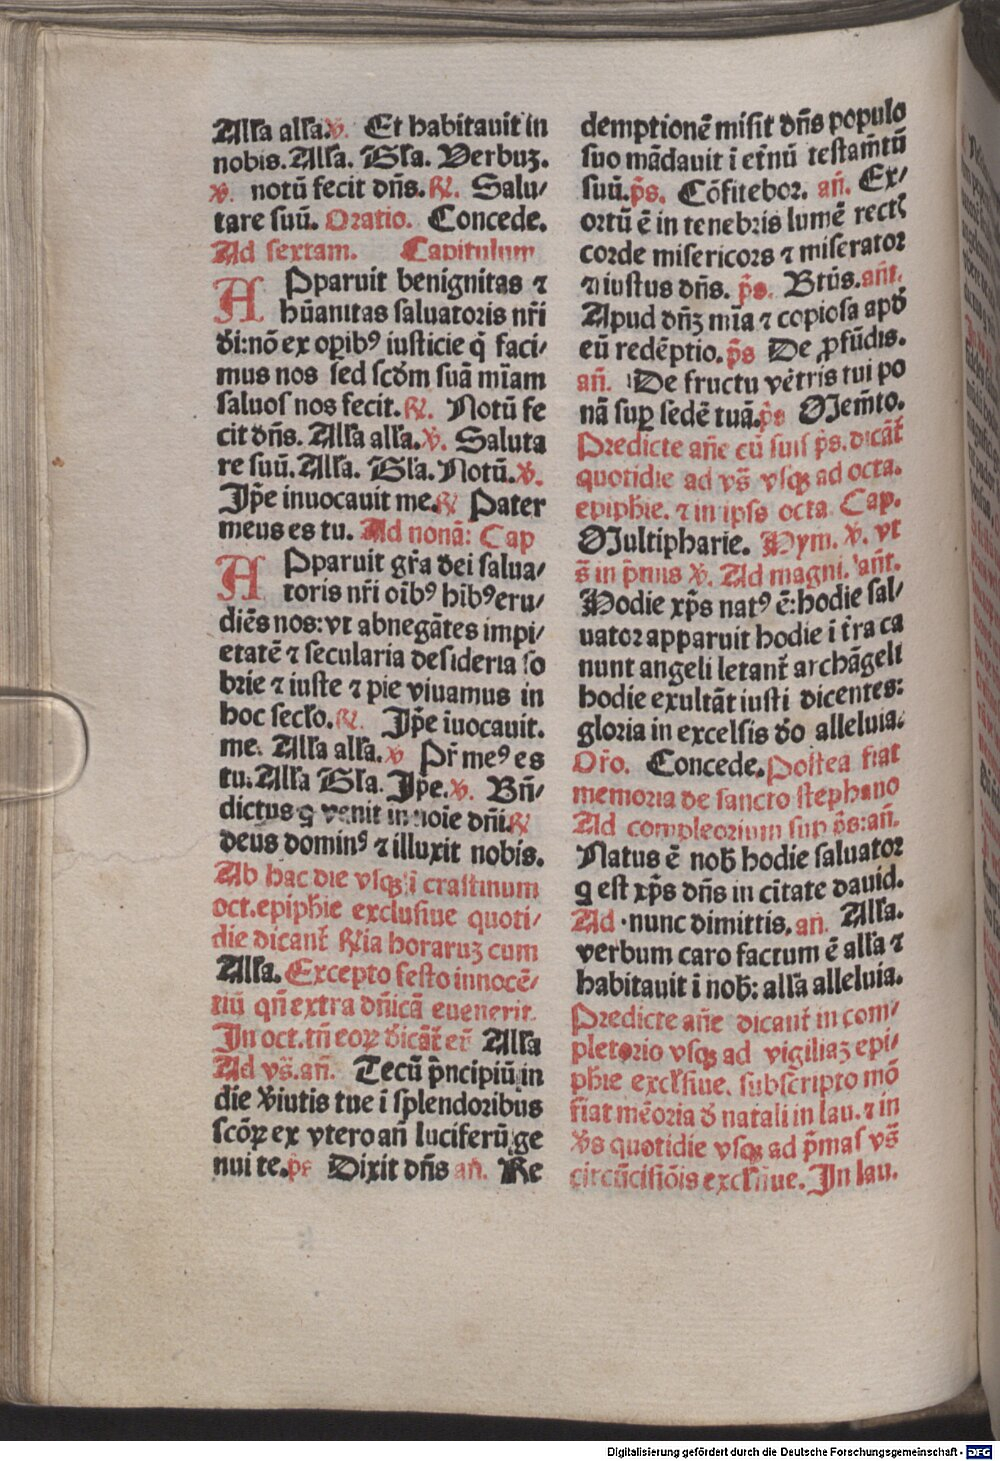 Alla alla. ℣. Et habitauit in
nobis. Alla. Gla. Verbuz.
℣. notū fecit dñs. ℟. Salu/
tare suū. Oratio. Concede.
Ad sextam. Capitulum
APparuit benignitas ⁊
hūanitas saluatoris nr̄i
di: nō ex oꝑibꝰ iusticie q̄ faci/
mus nos sed scd̄m suā mīam
saluos nos fecit. ℟. Notū fe
cit dñs. Alla alla. ℣. Saluta
re suū. Alla. Gla. Notū. ℣.
Ip̄e inuocauit me. ℟ Pater
meus es tu. Ad nonā: Cap
APparuit gr̄a dei salua/
toris nr̄i oībꝰ hībꝰ eru/
diēs nos: vt abnegātes impi/
etatē ⁊ secularia desideria so
brie ⁊ iuste ⁊ pie viuamus in
hoc seclo. ℟. Ip̄e īuocauit.
me. Alla alla. ℣ Pr̄ meꝰ es
tu. Alla Gla. Ip̄e. ℣. Bn̄/
dictus q venit in noie dn̄i ℟
deus dominꝰ ⁊ illuxit nobis.
Ab hac die vsqꝫ ī crastinum
oct. epiphīe exclusiue quoti/
die dicant̄ ℟ia horaruꝫ cum
Alla. Excepto festo innocē/
tiū qn̄ extra dn̄icā euenerit.
In oct. tn̄ eoꝝ dicāt̄ eī Alla
Ad vs̄. an̄. Tecū pn̄cipiū in
die v̄iutis tue ī splendoribus
scōꝝ ex vtero an̄ luciferū ge
nui te. ps̄ Dixit dñs an̄. Re
demptionē misit dñs populo
suo mādauit ī et̄nū testam̄tū
suū. ps̄. Cōfitebor. an̄. Ex/
ortū ē in tenebris lumē rectꝭ
corde misericors ⁊ miserator
⁊ iustus dñs. ps̄. Btūs. an̄t.
Apud dn̄ꝫ mīa ⁊ copiosa apd̄
eū redēptio. ps̄ De ꝓfūdis.
an̄. De fructu vētris tui po
nā suꝑ sedē tuā. ps̄ Mem̄to.
Predicte an̄e cū suis ps̄. dicāt̄
quotidie ad vs̄ vsqꝫ ad octa.
epiphīe. ⁊ in ipso octa Cap.
Multipharie. Hym. ℣. vt
s̄ in p̄mis ℣. Ad magni. an̄t.
Hodie xp̄s natꝰ ē: hodie sal/
uator apparuit hodie ī tr̄a ca
nunt angeli letant̄ archāgeli
hodie exultāt iusti dicentes:
gloria in excelsis do alleluia.
Or̄o. Concede. Postea fiat
memoria de sancto stephano
Ad completorium suꝑ ps̄: an̄.
Natus ē nob̄ hodie saluator
q est xp̄s dñs in cītate dauid.
Ad nunc dimittis, an̄. Alla.
verbum caro factum ē alla ⁊
habitauit ī nob̄: alla alleluia.
Predicte an̄e dicant̄ in com/
pletorio vsqꝫ ad vigiliaꝫ epi/
phīe exclsiue. subscripto mō
fiat mēoria d̄ natali in lau. ⁊ in
v̄s quotidie vsqꝫ ad p̄mas vs̄
circūcisiōis exclusiue. In lau.
Digitalisierung gefördert durch die Deutsche Forschungsgemeinschaft - DFG